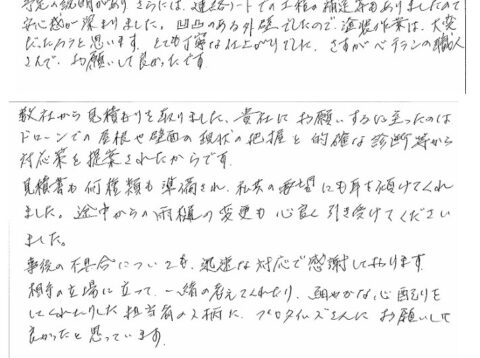 予定の説明があり さらには、連絡ノートでの工程の補足等もありましたので
安心感が深まりました。凹凸のある外壁でしたので、塗装作業は、大変
だったろうと思います。とても丁寧な仕上がりでした。さすがベテランの職人
さんで、お願いして良かったです。
数社から見積もりを取りました。貴社に お願いするに至ったのは
ドローンでの屋根や壁面の現状の把握と的確な診断等から
対応策を提案されたからです。
見積書も何種類も準備され、私共の要望にも耳を傾けてくれ
ました。途中からの雨樋の変更も心良く引き受けてください
ました。
事後の不具合についても、迅速な対応で感謝しております。
相手の立場に立って、一緒に考えてくれたり、細やかな心配りを
してくれたりした担当者の人柄に、プロタイムズさんに お願いして
良かったと思っています。